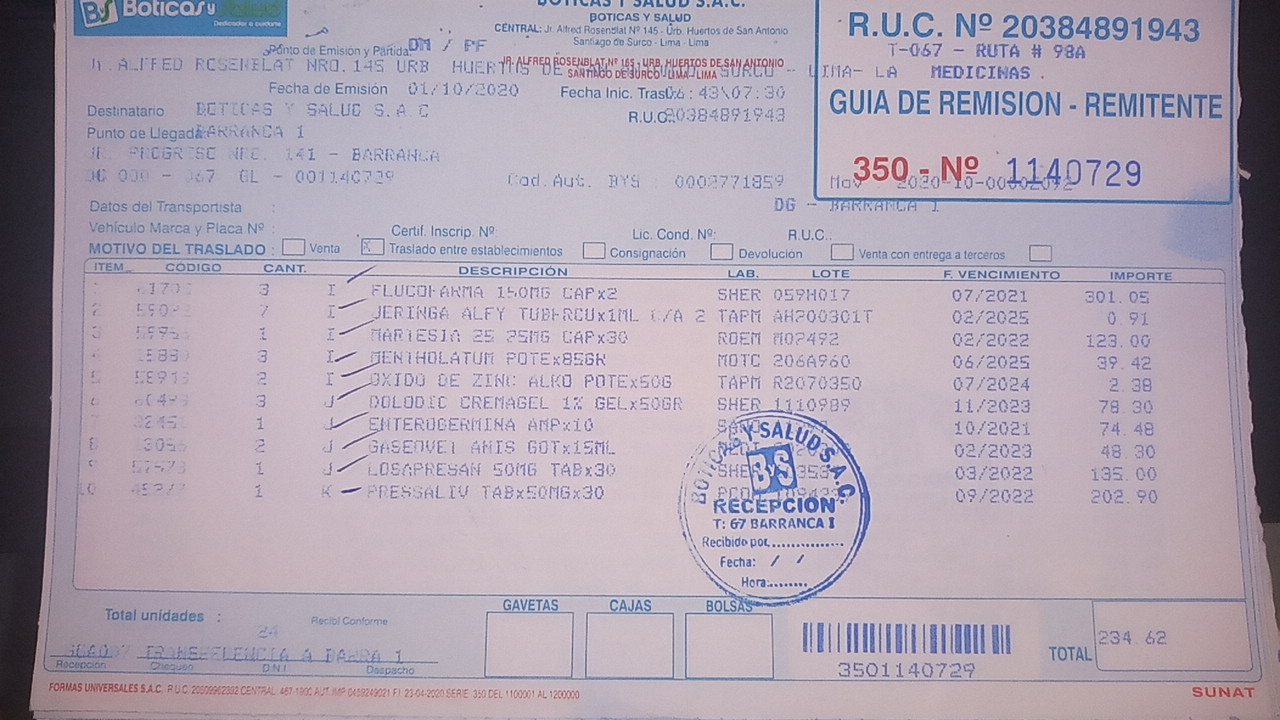 BS Boticas y Salud
Dedicados a cuidarte
BOTICAS Y SALUD S.A.C.
BOTICAS Y SALUD
CENTRAL: Jr. Alfred Rosenblat Nº 145 - Urb. Huertos de San Antonio
Santiago de Surco - Lima - Lima
JR. ALFRED ROSENBLAT Nº 165 URB. HUERTOS DE SAN ANTONIO
SANTIAGO DE SURCO - LIMA - LIMA
R.U.C. Nº 20384891943
T-067 - RUTA # 98A
MEDICINAS .
GUIA DE REMISION - REMITENTE
350 - Nº 1140729
Punto de Emisión y Partida: DM / PF
JR. ALFRED ROSENBLAT NRO. 145 URB HUERTOS DE SURCO - LIMA- LA
Fecha de Emisión 01/10/2020 Fecha Inic. Traslo.: 43\07:30
Destinatario BOTICAS Y SALUD S.A.C R.U.C. 20384891943
Punto de Llegada: BARRANCA 1
JR. PROGRESO NRO. 141 - BARRANCA
- 067 GL - 001140729 Cod.Aut. BYS : 0002771859 Mov
DG - BARRANCA 1
Datos del Transportista :
Vehículo Marca y Placa Nº : Certif. Inscrip. Nº: Lic. Cond. Nº: R.U.C.:
MOTIVO DEL TRASLADO : Venta X Traslado entre establecimientos Consignación Devolución Venta con entrega a terceros
ITEM CÓDIGO CANT. DESCRIPCIÓN LAB. LOTE F. VENCIMIENTO IMPORTE
1 3 I FLUCOFARMA 150MG CAPx2 SHER 059H017 07/2021 301.05
2 7 I JERINGA ALFY TUBERCUx1ML C/A 2 TAPM AH200301T 02/2025 0.91
3 1 I MARTESIA 25 25MG CAPx30 ROEM M02492 02/2022 123.00
4 3 I MENTHOLATUM POTEx85GR MOTC 206A960 06/2025 39.42
5 2 I OXIDO DE ZINC ALKO POTEx50G TAPM R2070350 07/2024 2.38
3 J DOLODIC CREMAGEL 1% GELx50GR SHER 1110989 11/2023 78.30
1 J ENTEROGERMINA AMPx10 10/2021 74.48
8 2 J GASEOVET ANIS GOTx15ML 02/2023 48.30
1 J LOSAPRESAN 50MG TABx30 SHE 03/2022 135.00
10 1 K PRESSALIV TABx50MGx30 09/2022 202.90
BOTICAS Y SALUD S.A.C.
BS
RECEPCION
T: 67 BARRANCA I
Recibido por
Fecha: / /
Hora:
Total unidades : 24 Recibi Conforme GAVETAS CAJAS BOLSAS
TRANSFERENCIA A BARRA 1
Recepción Chequeo D.N.I. Despacho
3501140729
TOTAL 234.62
FORMAS UNIVERSALES S.A.C. R.U.C. 20509962392 CENTRAL: 467-1900 AUT. IMP. 0459249021 F.I. 23-04-2020 SERIE: 350 DEL 1100001 AL 1200000
SUNAT